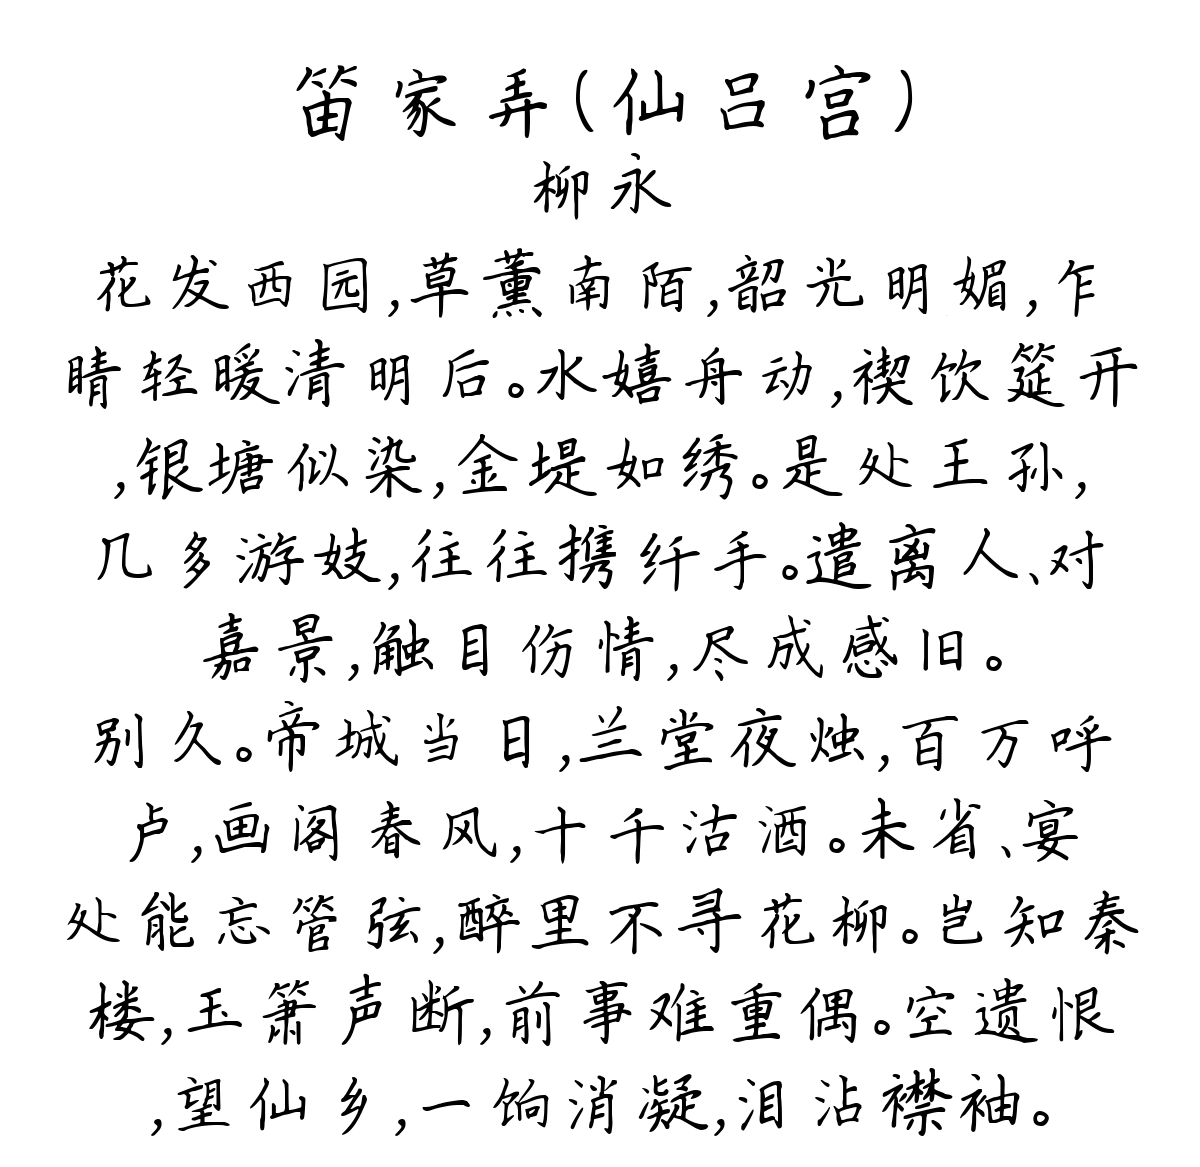 笛家弄(仙吕宫)
柳永
花发西园,草薰南陌,韶光明媚,乍
晴轻暖清明后。水嬉舟动,禊饮筵开
,银塘似染,金堤如绣。是处王孙,
几多游妓,往往携纤手。遣离人、对
嘉景,触目伤情,尽成感旧。
别久。帝城当日,兰堂夜烛,百万呼
卢,画阁春风,十千沽酒。未省、宴
处能忘管弦,醉里不寻花柳。岂知秦
楼,玉箫声断,前事难重偶。空遗恨
,望仙乡,一饷消凝,泪沾襟袖。